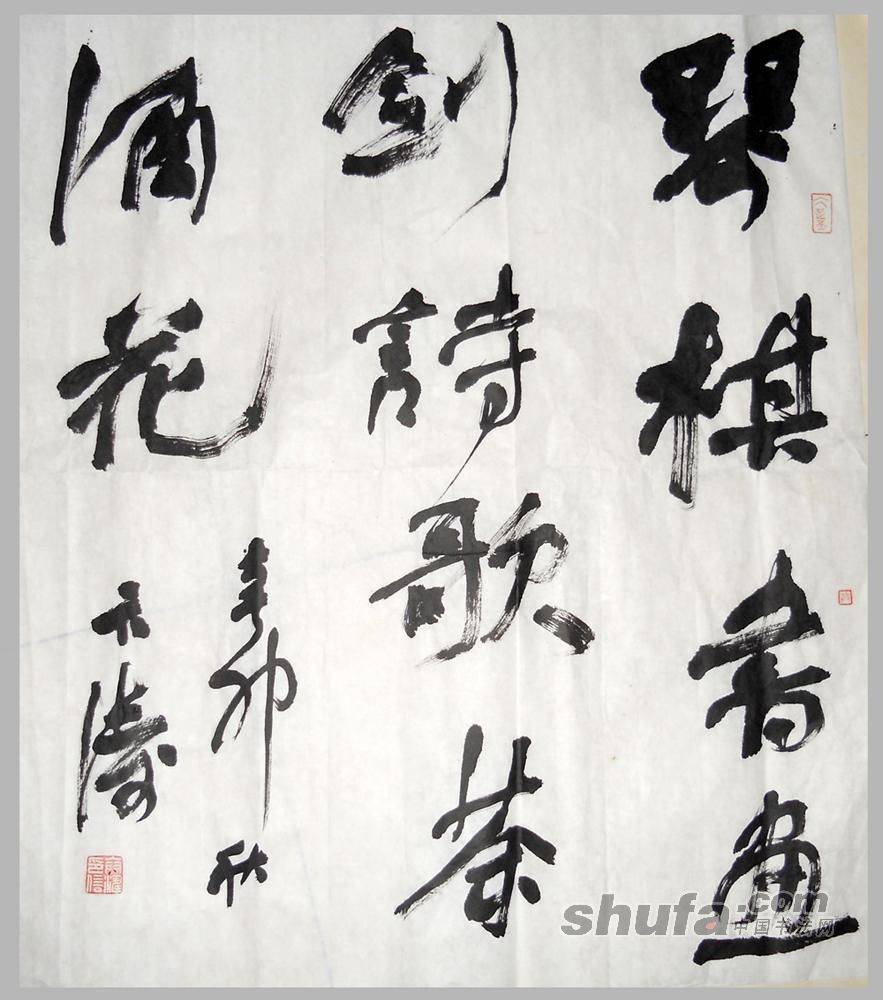 琴棋書畫
劍詩歌茶
酒花
辛卯秋
天濤
shufa.com
中国书法网